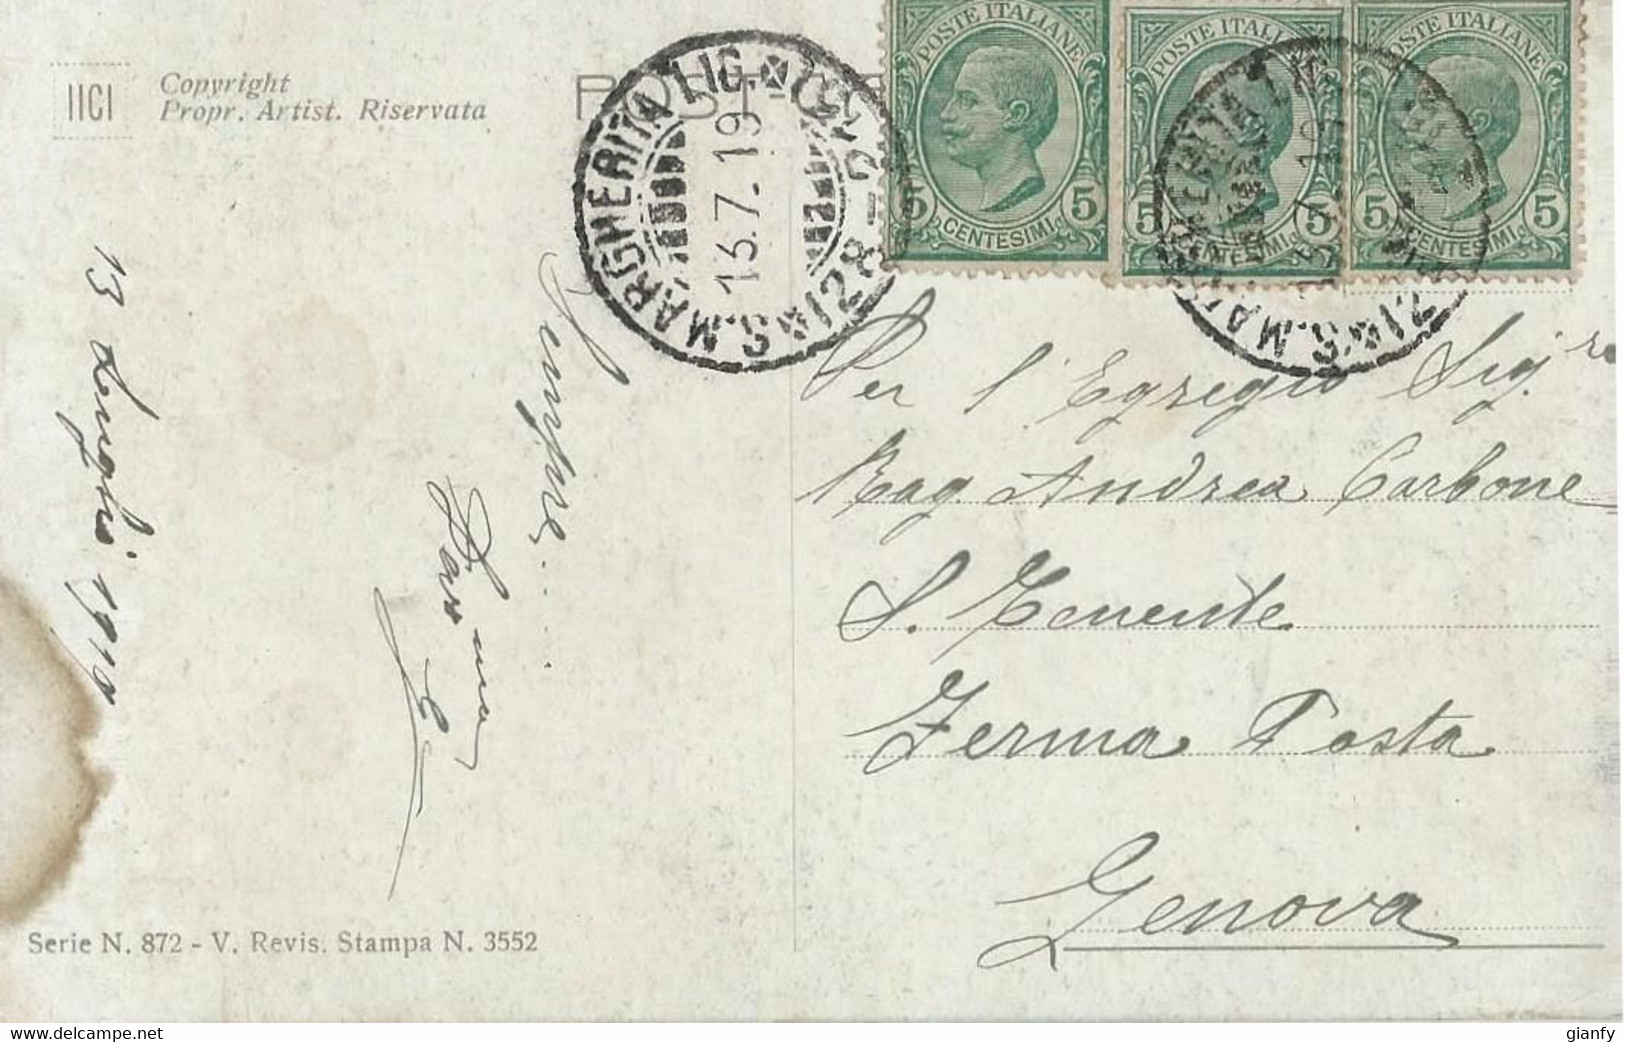 IICI
Copyright
Propr. Artist. Riservata
S. MARGHERITA LIG.
16.7.19
POSTE ITALIANE
5 CENTESIMI 5
POSTE ITALIANE
5 CENTESIMI 5
POSTE ITALIANE
5 CENTESIMI 5
13 Luglio 1919
Sempre.....
Per l'Egregio Sig.re
Rag. Andrea Carbone
S. Tenente
Ferma Posta
Genova
Serie N. 872 - V. Revis. Stampa N. 3552
www.delcampe.net
gianfy